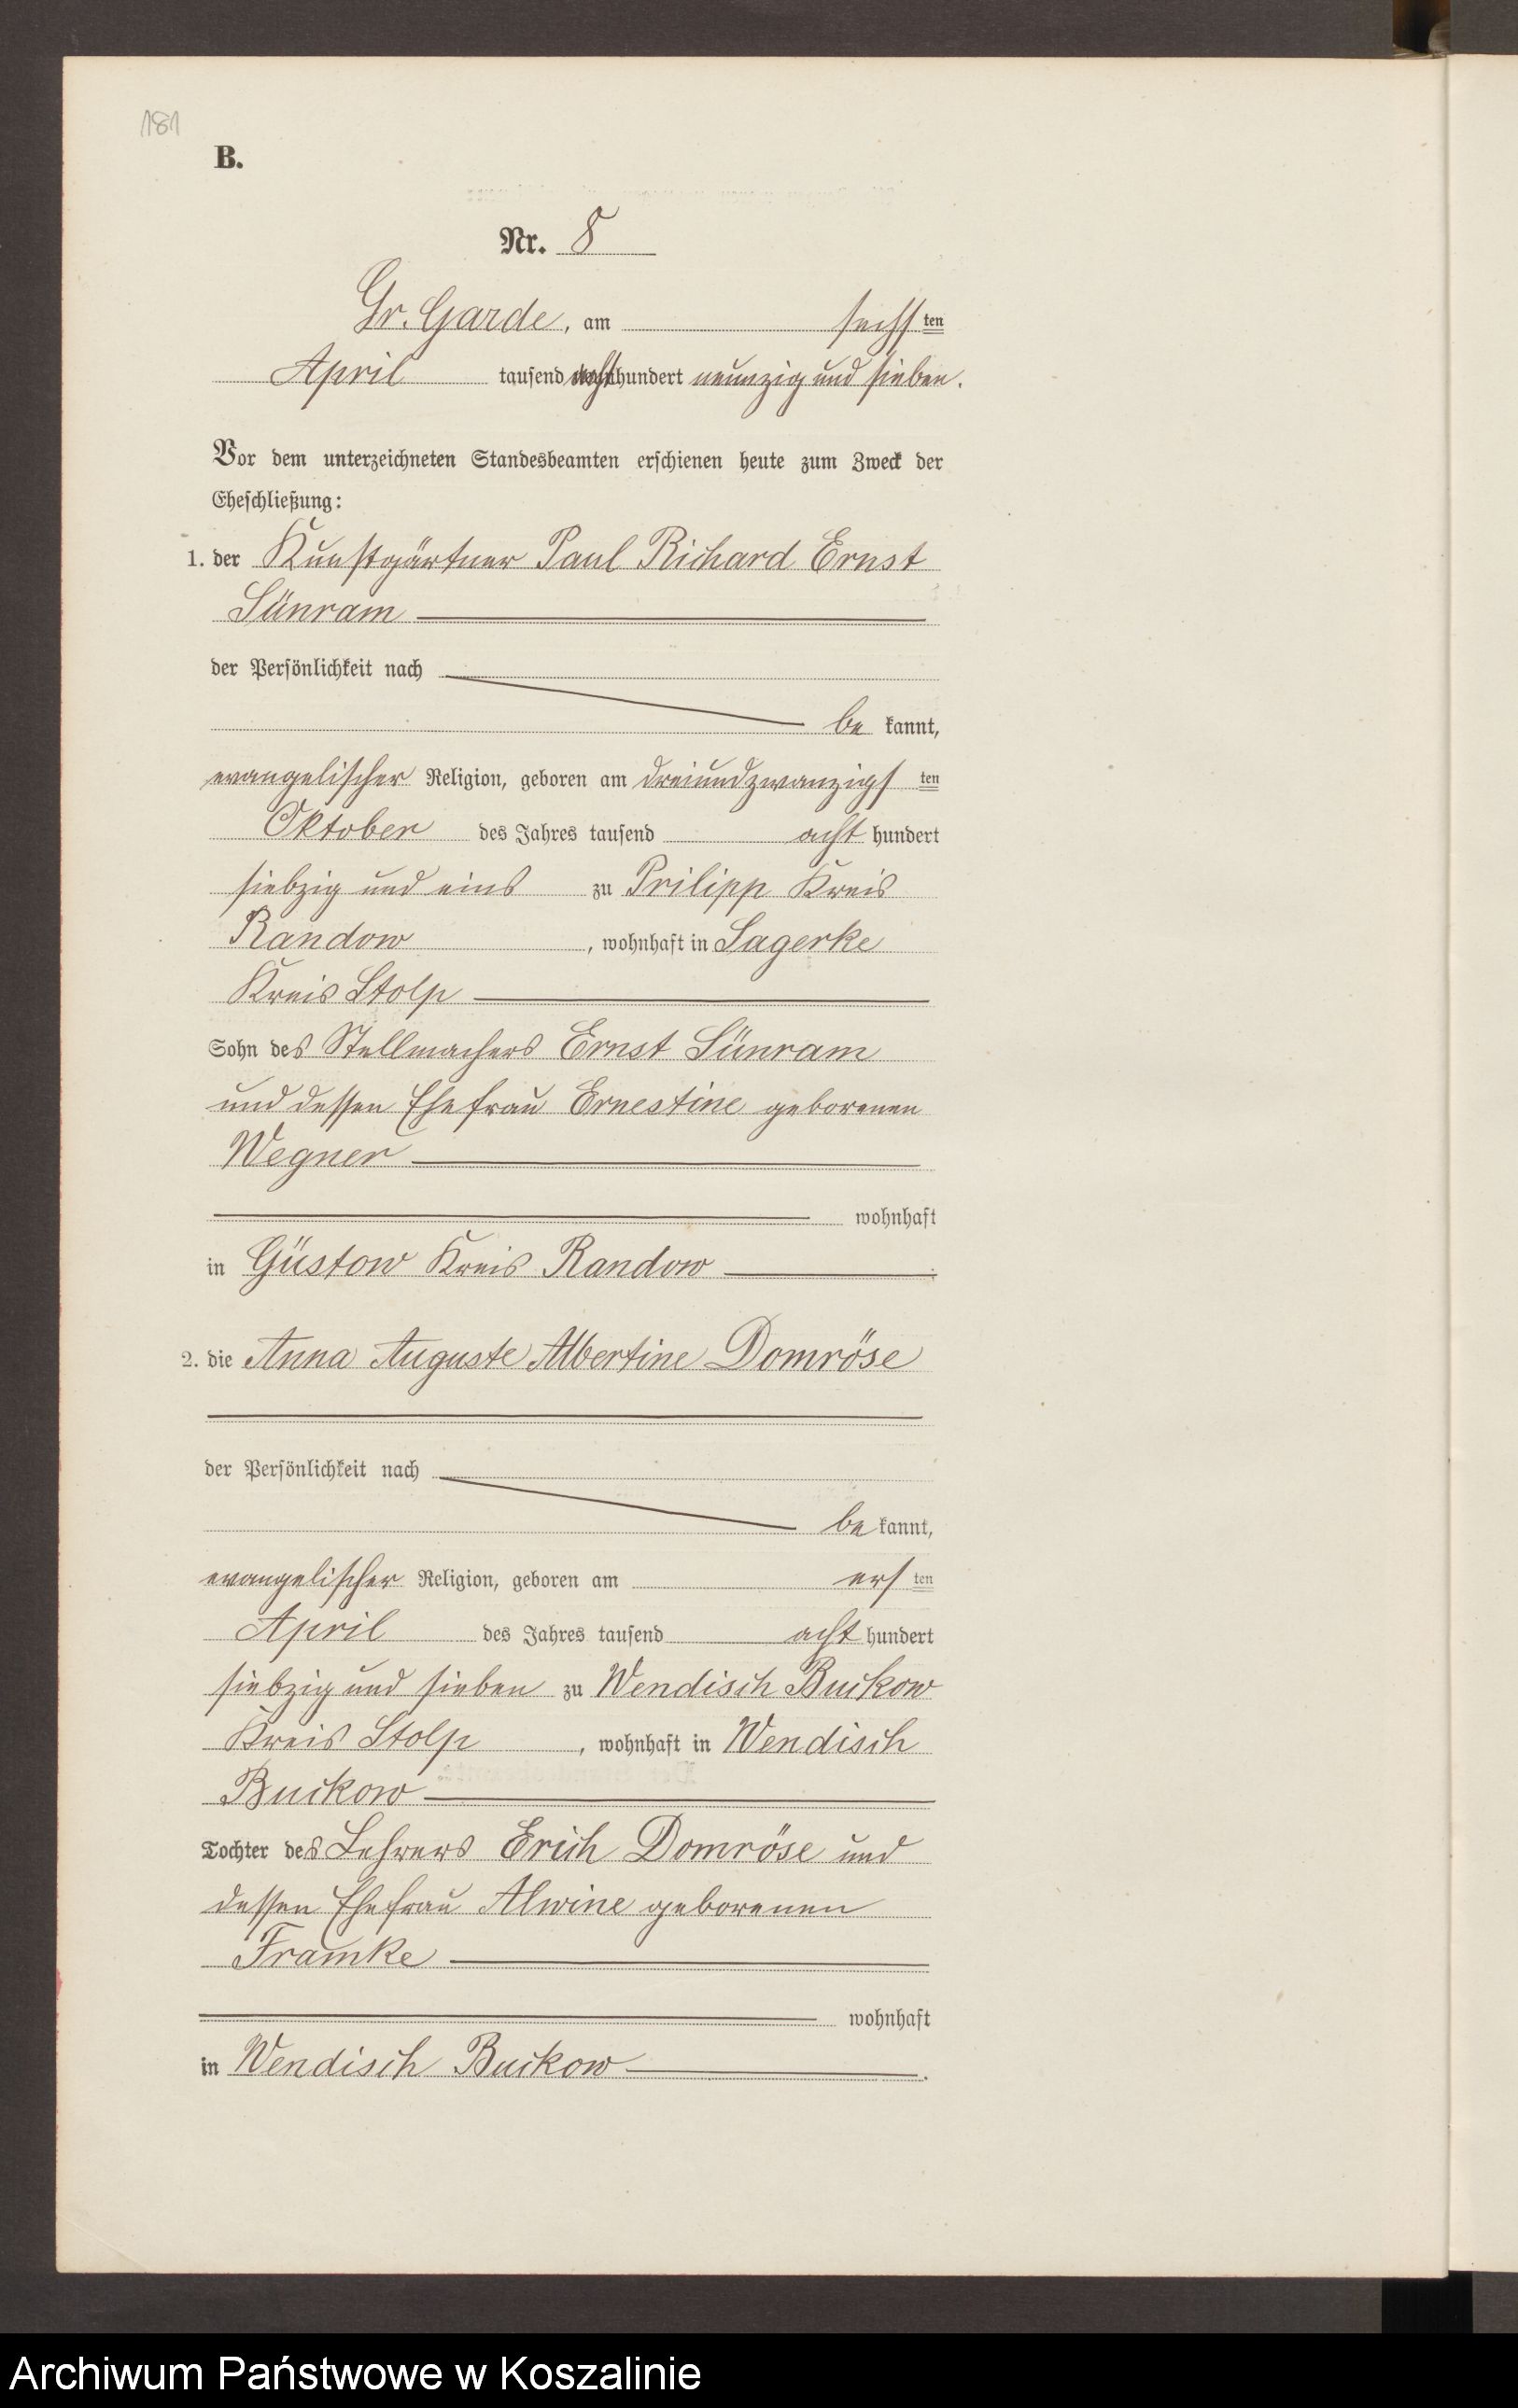 181
B.
Nr. 8
Gr. Garde, am sechsten
April tausend achthundert neunzig und sieben.
Vor dem unterzeichneten Standesbeamten erschienen heute zum Zweck der
Eheschließung:
1. der Kunstgärtner Paul Richard Ernst
Sünram
der Persönlichkeit nach
be kannt,
evangelischer Religion, geboren am dreiundzwanzigsten
Oktober des Jahres tausend acht hundert
siebzig und eins zu Prilipp Kreis
Randow, wohnhaft in Lagerke
Kreis Stolp
Sohn des Stellmachers Ernst Sünram
und dessen Ehefrau Ernestine geborenen
Wegner
wohnhaft
in Güstow Kreis Randow
2. die Anna Auguste Albertine Domröse
der Persönlichkeit nach
be kannt,
evangelischer Religion, geboren am ersten
April des Jahres tausend acht hundert
siebzig und sieben zu Wendisch Buckow
Kreis Stolp, wohnhaft in Wendisch
Buckow
Tochter des Lehrers Erich Domröse und
dessen Ehefrau Alwine geborenen
Framke
wohnhaft
in Wendisch Buckow.
Archiwum Państwowe w Koszalinie